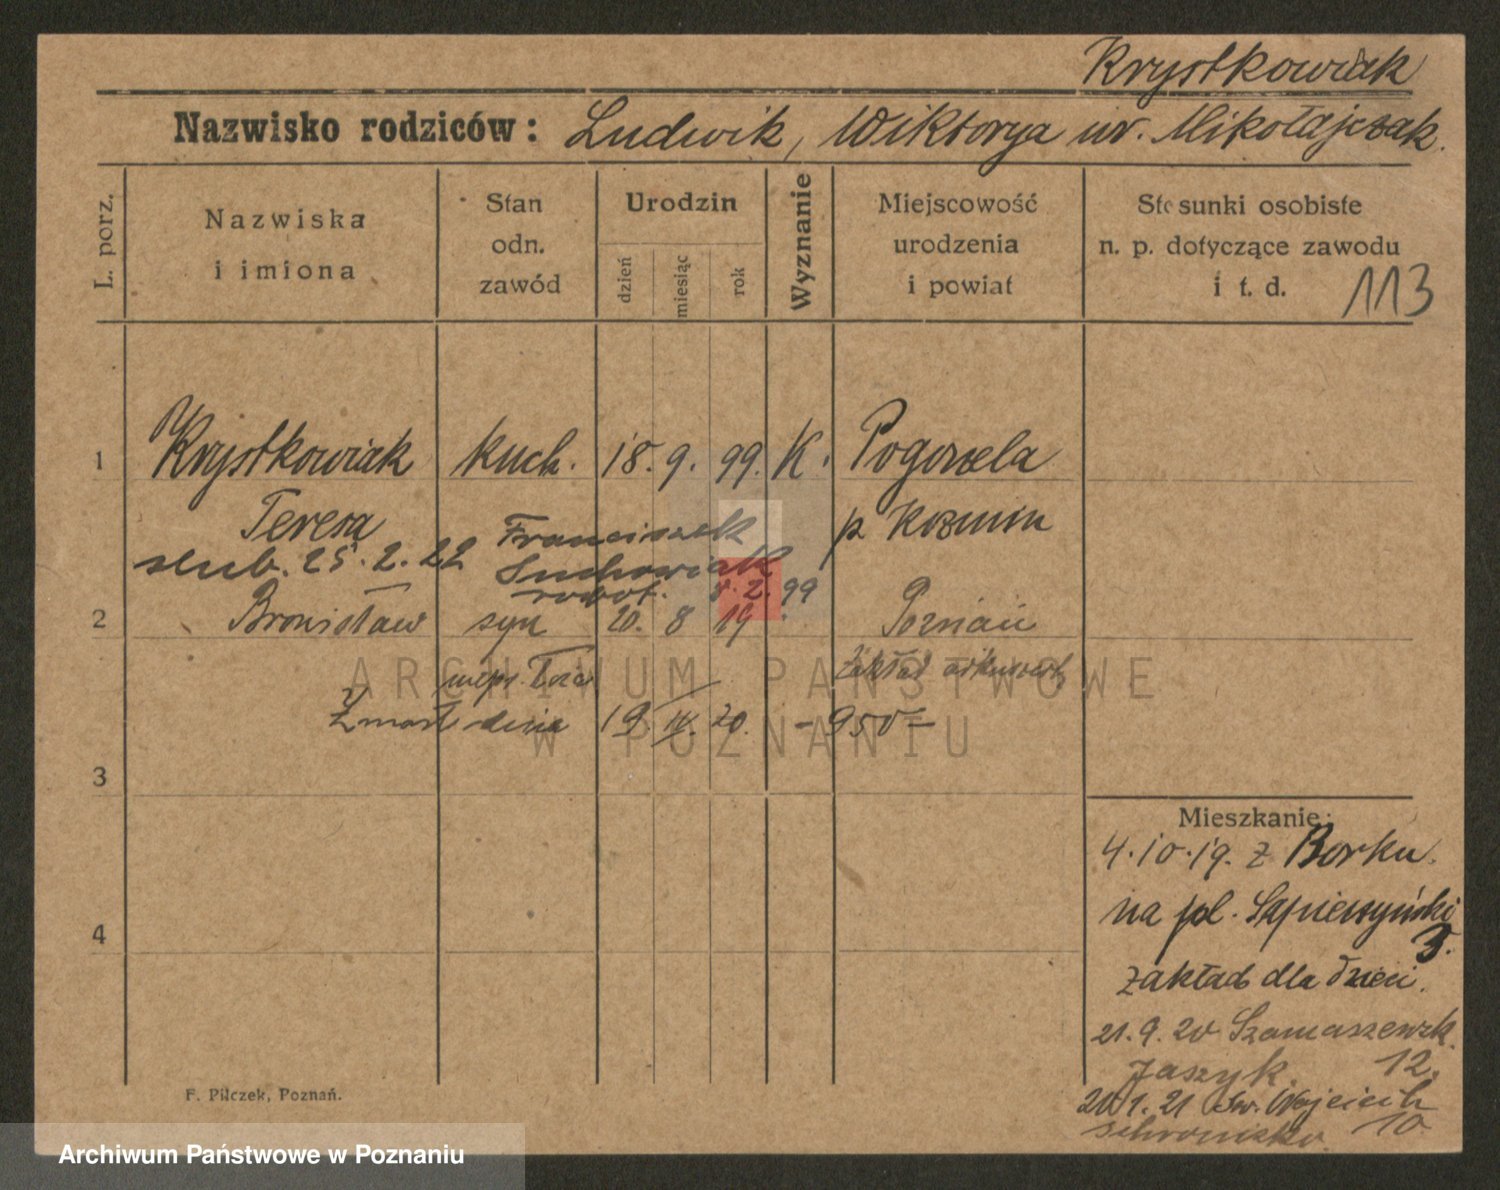 Krystkowiak
Nazwisko rodziców: Ludwik, Wiktorya ur. Mikołajczak.
L. porz.
Nazwiska i imiona
Stan odn. zawód
Urodzin
dzień
miesiąc
rok
Wyznanie
Miejscowość urodzenia i powiat
Stosunki osobiste n. p. dotyczące zawodu i t. d.
113
1 Krystkowiak kuch. 18. 9. 99. K. Pogorzela
Teresa p Kozmin
slub. 25. 2. 22 Franciszek
Suchowiak
robot. 8. 2. 99
2 Bronisław syn 20. 8 19 Poznań
Zakład
Zmarł dnia 19. IV. 20. - 950 -
3
4
Mieszkanie:
4.10.19. z Borku.
na pl. Sapieżyński
3.
zakład dla dzieci.
21. 9. 20 Szamaszewsk.
Jaszyk. 12.
1. 21 Św. Wojciech
schronisko 10
F. Pilczek, Poznań.
ARCHIWUM PAŃSTWOWE
W POZNANIU
Archiwum Państwowe w Poznaniu